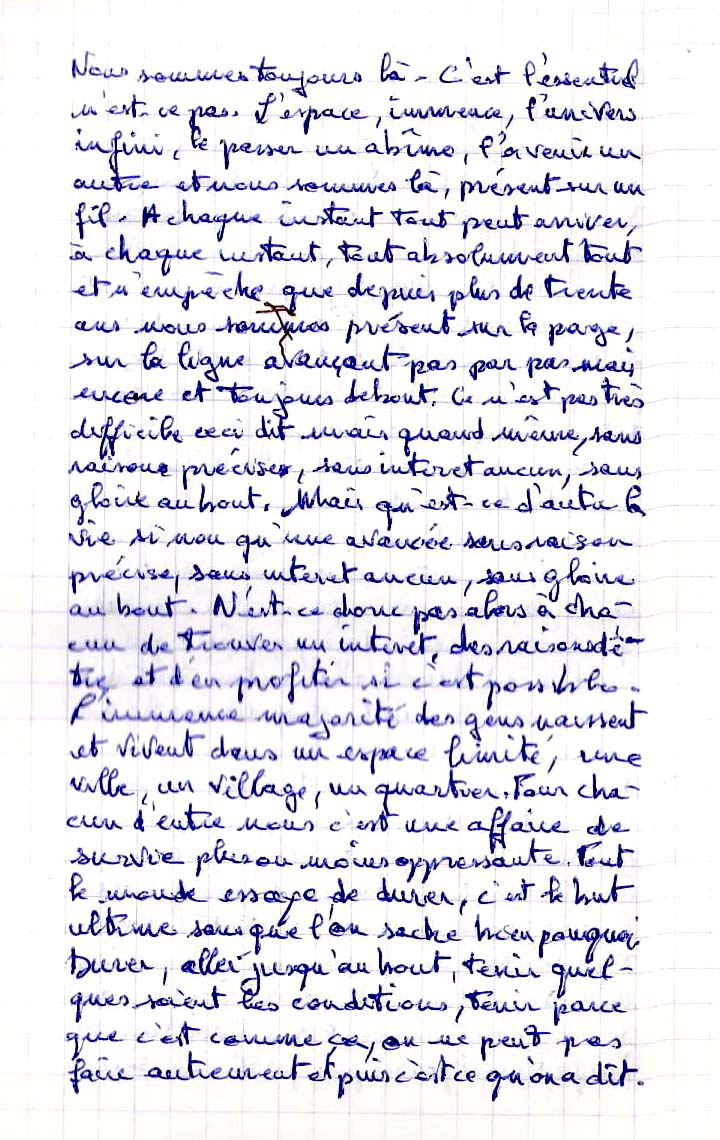 Nous sommes toujours là - C'est l'essentiel
n'est-ce pas. L'espace, immence, l'univers
infini, le passer un abîme, l'avenir un
autre et nous sommes là, présent sur un
fil. A chaque instant tout peut arriver,
à chaque instant, tout absolument tout
et n'empêche que depuis plus de trente
ans nous sommes présent sur la page,
sur la ligne avançant pas par pas mais
encore et toujours debout. Ce n'est pas très
difficile ceci dit mais quand même, sans
raisons précises, sans interet aucun, sans
gloire au bout. Mais qu'est-ce d'autre la
vie si non qu'une avancée sans raison
précise, sans interet aucun, sans gloire
au bout. N'est-ce donc pas alors à cha-
cun de trouver un interet, des raisons d'ê-
tre et d'en profiter si c'est possible.
L'immence majorité des gens naissent
et vivent dans un espace limité, une
ville, un village, un quartier. Pour cha-
cun d'entre nous c'est une affaire de
survie plus ou moins oppressante. Tout
le monde essaye de durer, c'est le but
ultime sans que l'on sache bien pourquoi
Durer, aller jusqu'au bout, tenir quel-
ques soient les conditions, tenir parce
que c'est comme ça, on ne peut pas
faire autrement et puis c'est ce qu'on a dit.